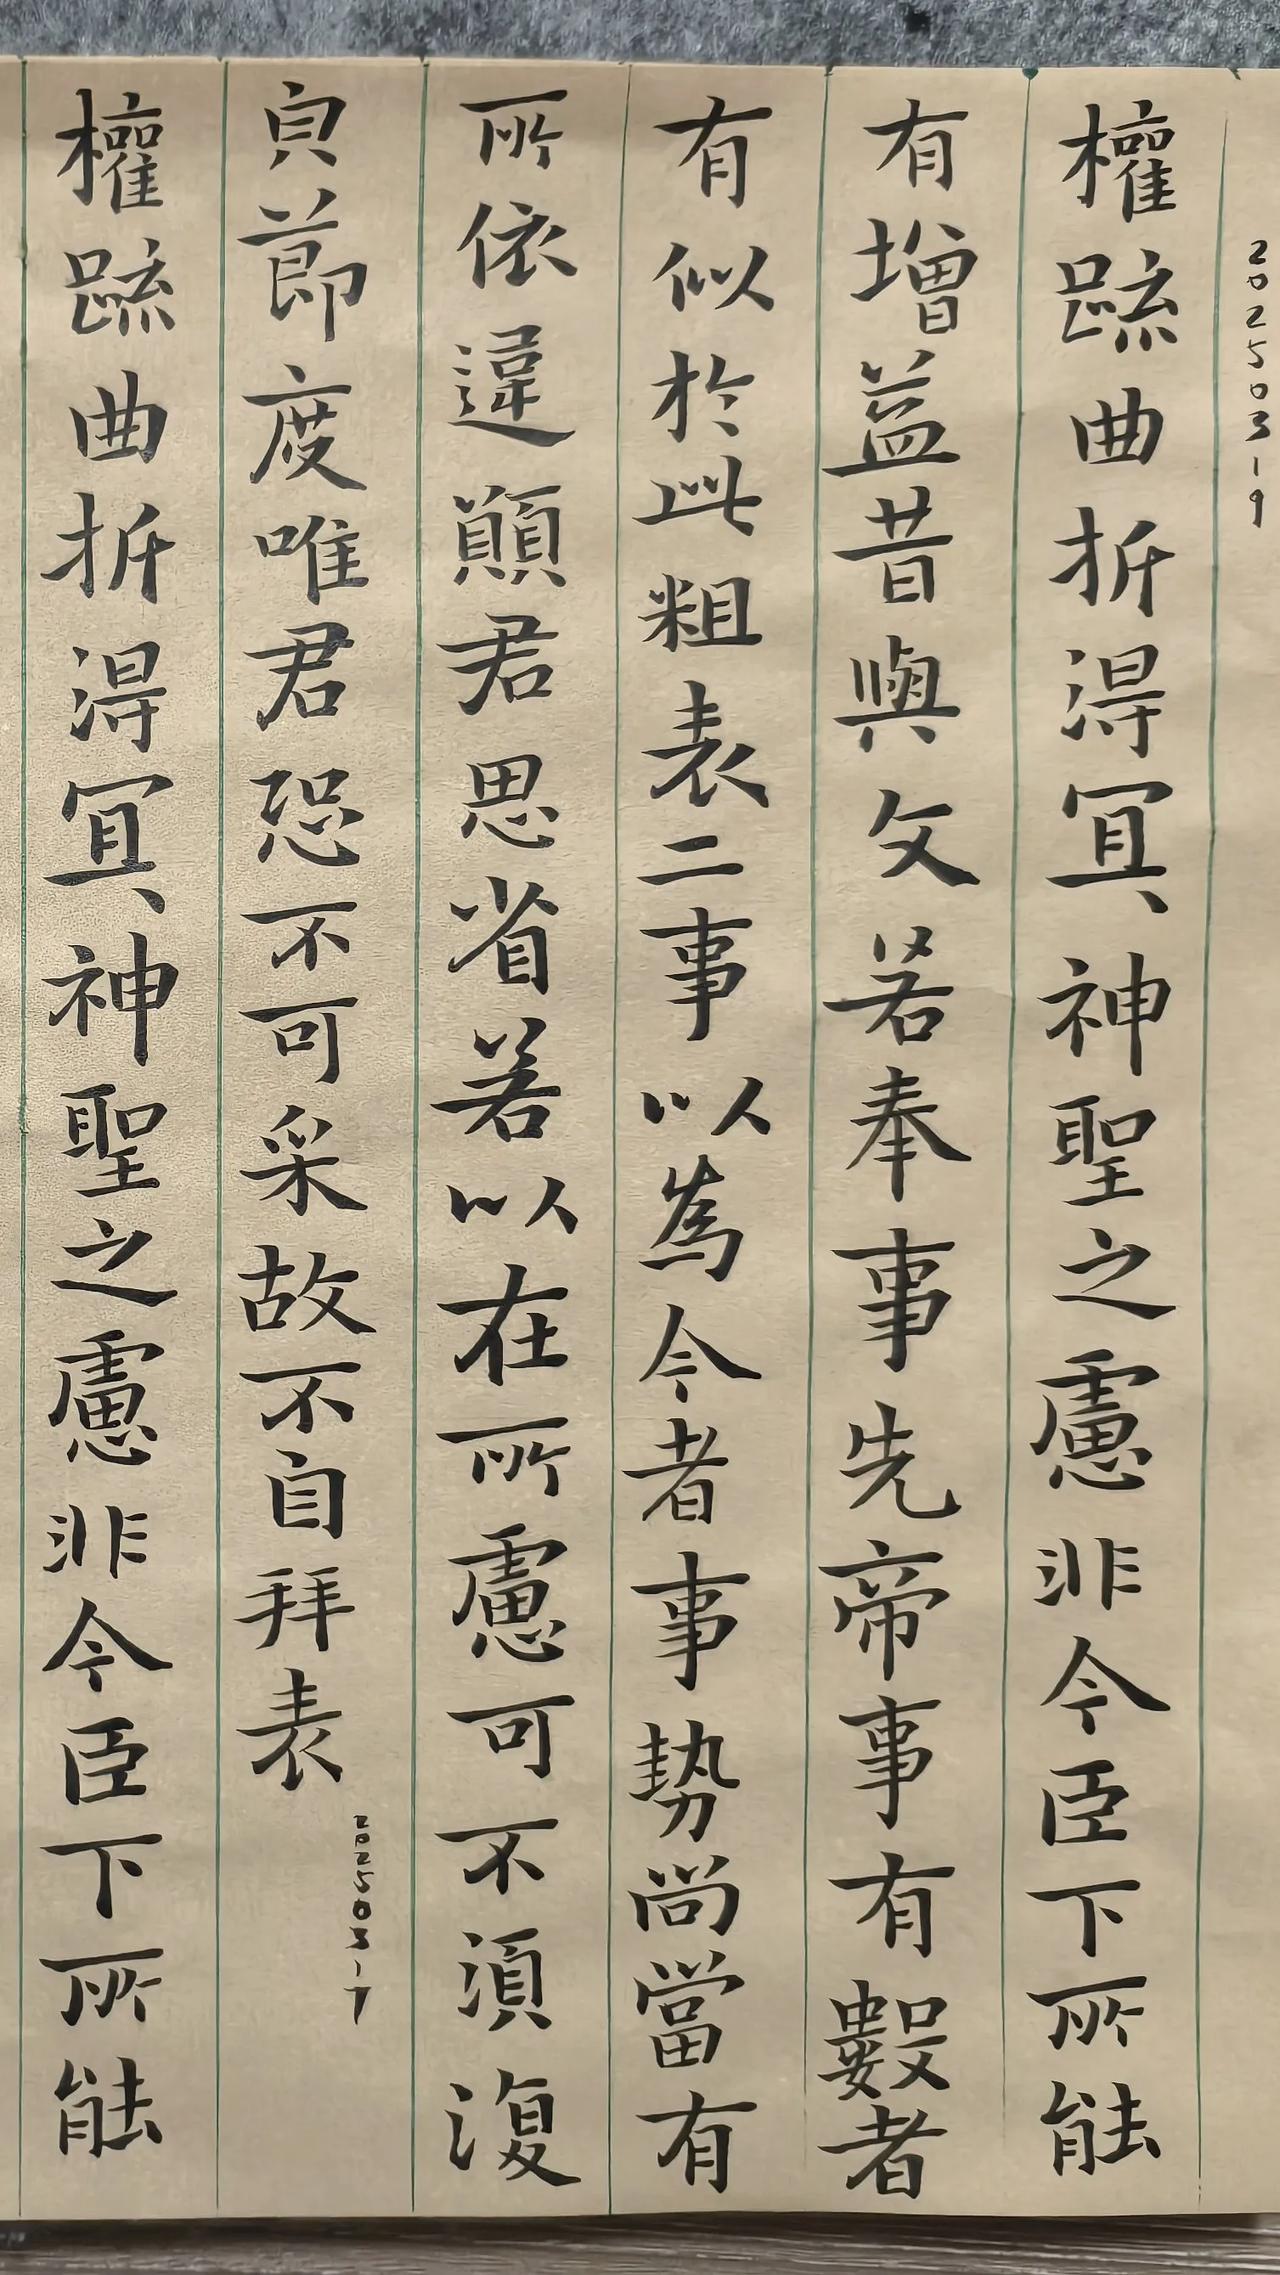 202503-9
權疏曲折得冝神聖之慮非今臣下所能
有增益昔與文若奉事先帝事有數者
有似於此粗表二事以為今者事勢尚當有
所依違願君思省若以在所慮可不須復
皃節度唯君恐不可采故不自拜表
202503-7
權疏曲折得冝神聖之慮非今臣下所能